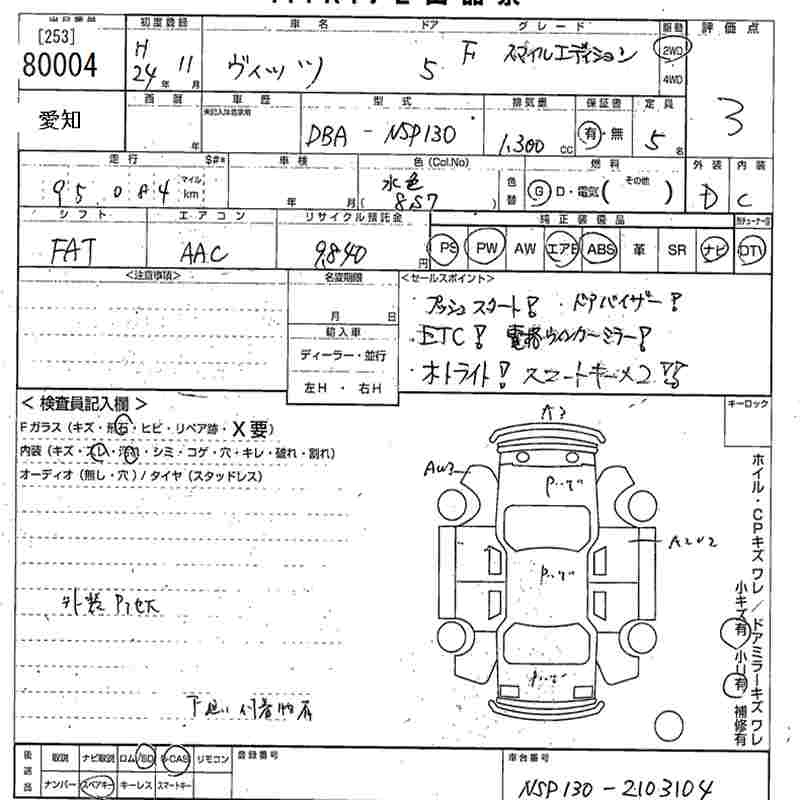 [253]
80004
初度登録 車名 ドア グレード 駆動 評価点
H 24年 11月 ヴィッツ 5 F スマイルエディション 2WD 4WD 3
愛知 西暦 年 車歴 型式 排気量 保証書 定員
未記入は自家用
DBA - NSP130 1,300 cc 有・無 5名
走行 $#* 車検 色(Col.No) 色替 燃料 外装 内装
95,084 マイル km 年 月 水色 (857) G D・電気(その他) D C
シフト エアコン リサイクル預託金 純正装備品
FAT AAC 9,840円 PS PW AW エアB ABS 革 SR ナビ DTV
<注意事項> 名変期限 <セールスポイント>
月 日 ・プッシュスタート! ・ドアバイザー!
輸入車 ・ETC! 電格ウィンカーミラー!
ディーラー・並行
左H ・ 右H ・オートライト! スマートキー×2!!
< 検査員記入欄 > キーロック
Fガラス(キズ・飛石・ヒビ・リペア跡・X要)
内装(キズ・スレ・汚れ・シミ・コゲ・穴・キレ・破れ・割れ)
オーディオ(無し・穴)/タイヤ(スタッドレス)
A3
AW3
A2U2
外装
下廻り付着物有
ホイル・CPキズワレ/ドアミラーキズワレ
小キズ有 小U有 補修有
後送品 取説 ナビ取説 ロム/SD B-CAS リモコン 登録番号 車台番号
ナンバー スペアキー キーレス スマートキー NSP130-2103104